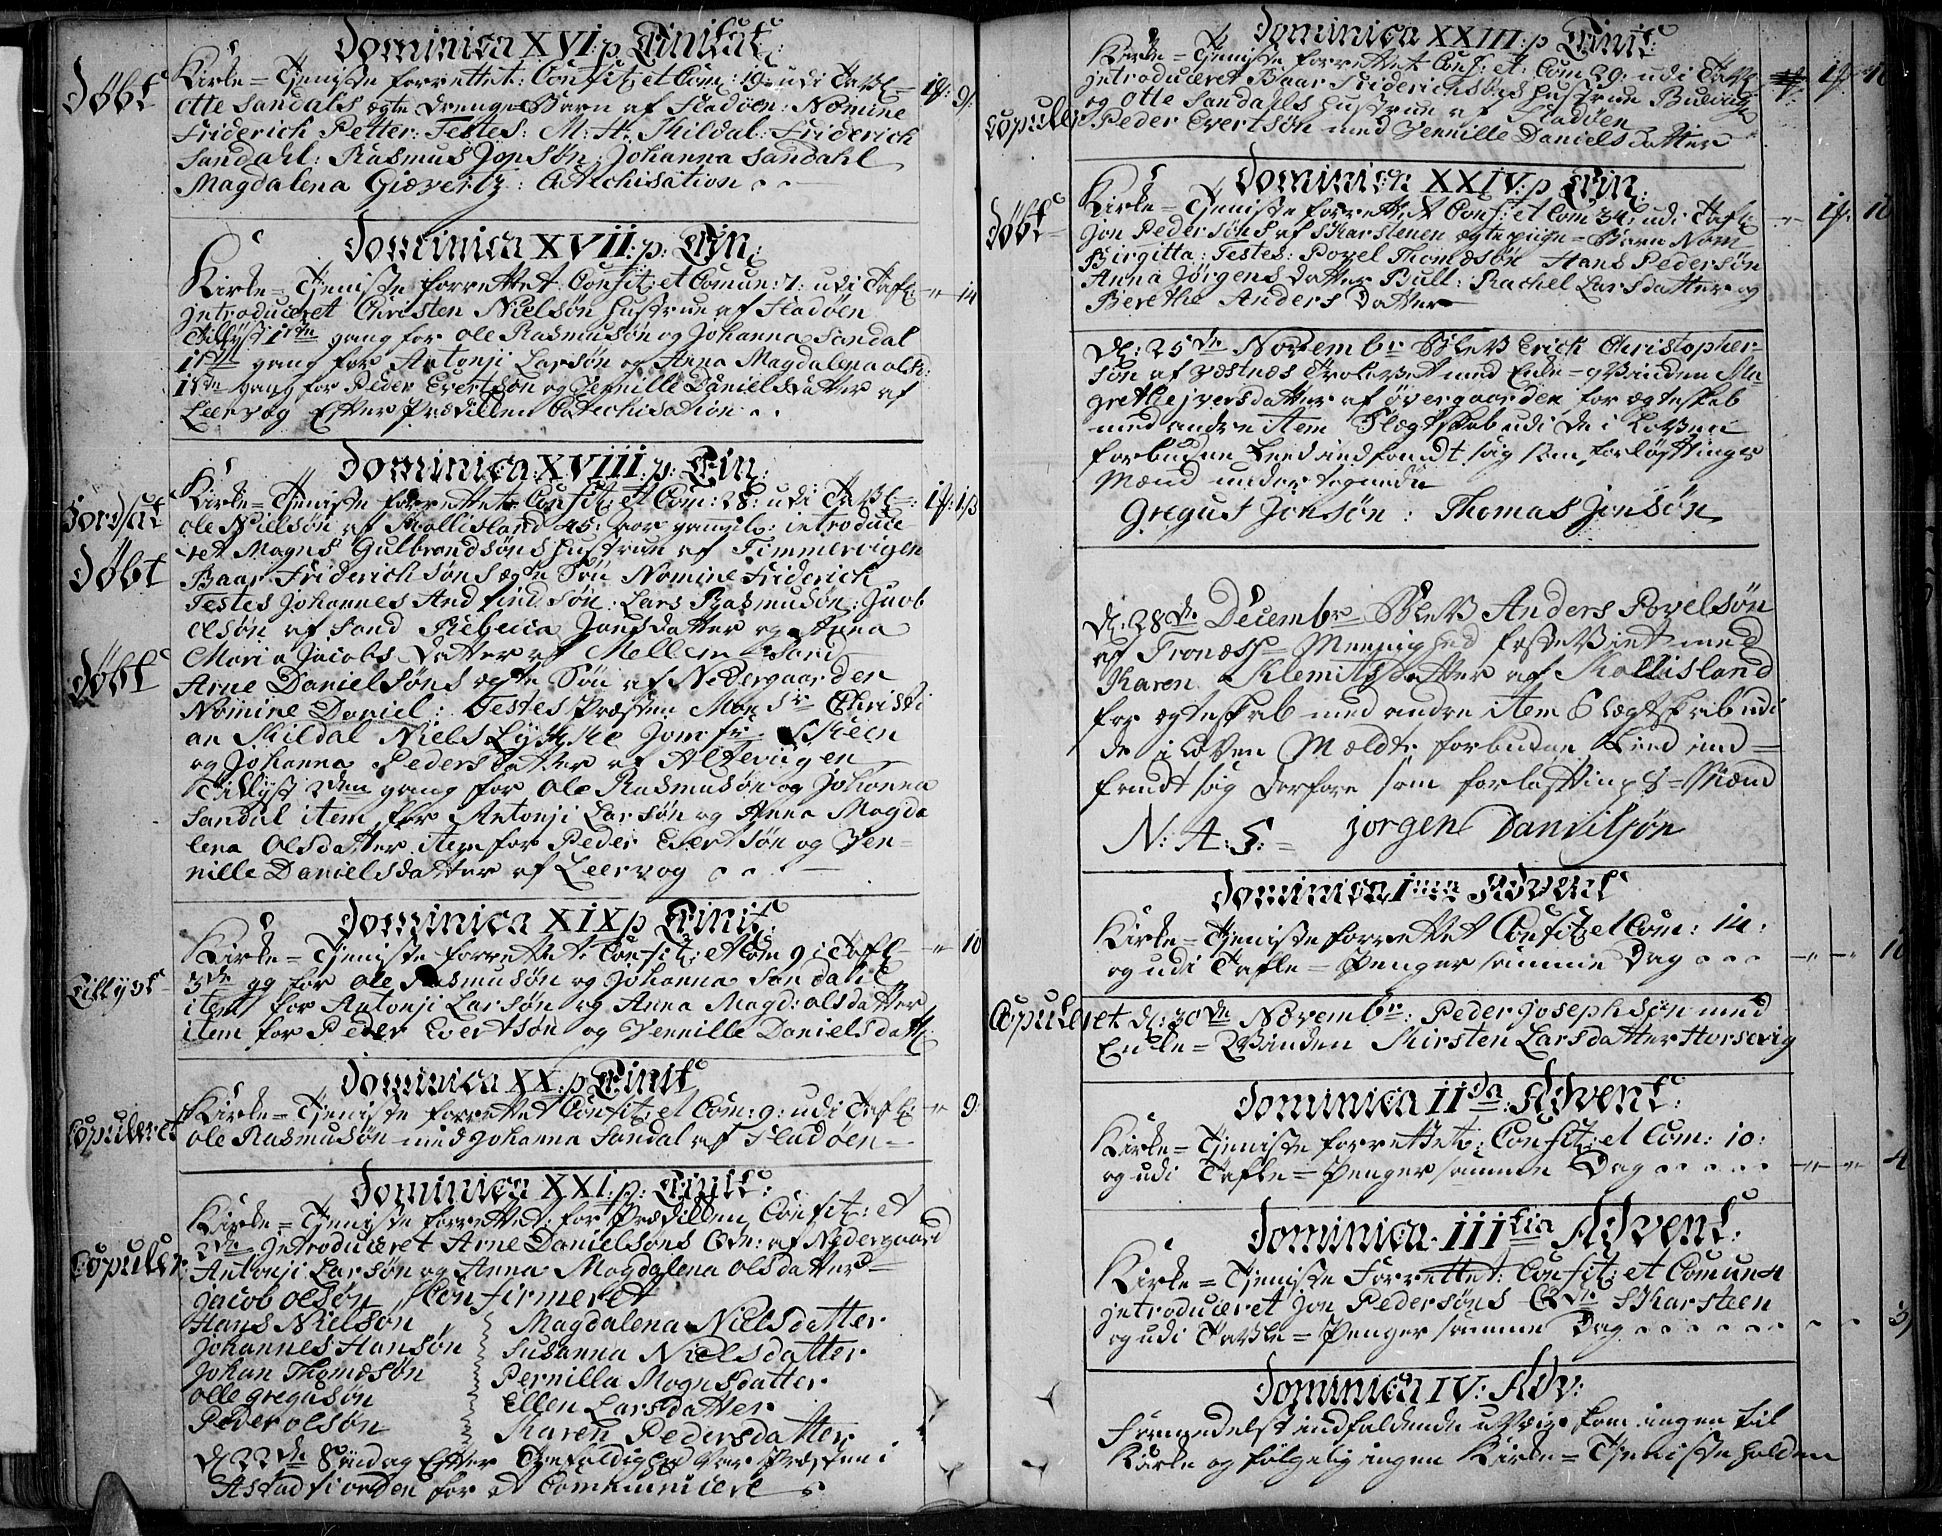 Dominica XVI: p Trinitat:
Døbt
Kirke=Tjeniste forrettet: Confit: et Com: 19: udi Tavl= 1f: 9f:
Otte Sandals ægte Drenge Barn af Fladøen: Nomine
Friderich Petter: Testes: M: H: Kildal: Friderich
Sandahl: Rasmus Jonsøn: Johanna Sandahl
Magdalena Giævertz: Catechisation
Dominica XVII: p: Trin:
Kirke=Tjeniste forrettet: Confit: et Comun: 7: udi Tafl: - 14
Introduceret Christen Nielsøn Hustrue af Fladøen
Tillyst 1ste gang for Ole Rasmusøn og Johanna Sandal
1ste gang for Antonji Larsøn og Anna Magdalena Olsd:
1ste gang for Peder Evertsøn og Jennille Danielsdatter af
Leervog Efter Prædiken Catechisation
Dominica XVIII: p: Trin:
Kirke=Tjeniste forrettet Confit: et Com: 28: udi Tavl=: 1f: 13
Jordsat
Ole Nielsøn af Kollisland 45: Aar gamel: introduce
ret Magns Gulbrandsøns Hustrue af Timmervigen
Døbt
Baar Friderichsøns ægte Søn Nomine Friderich
Testes Johannes And find søn: Lars Rasmusøn: Jacob
Olsøn af Sand Rebecca Jonsdatter og Anna
Maria Jacobs Datter af Mellem Sand
Døbt
Arne Danielsøns ægte Søn af Nedergaarden
Nomine Daniel: Testes Præsten Monsr: Christi
an Kildal Niels Lykke Jomfr: Skeen
og Johanna Pedersdatter af Altevigen
Tillyst 2den gang for Ole Rasmusøn og Johanna
Sandal item for Antonji Larsøn og Anna Magda
lena Olsdatter item for Peder Evertsøn og Jen=
nille Danielsdatter af Leervog
Dominica XIX p Trinit:
Kirke=Tjeniste forrettet: Confit: et Com 9: i Tafl: - 10
Tillyst
3die gg for Ole Rasmusøn og Johanna Sandahl
item for Antonji Larsøn og Anna Magd: Olsdatter
item for Peder Evertsøn og Jennille Danielsdatt:
Dominica XX: p Trinit
Kirke=Tjeniste forrettet Confit: et Com: 9: udi Tafl: - 9:
Copuleret
Ole Rasmusøn med Johanna Sandal af Fladøen
Dominica XXI: p: Trinit:
Kirke=Tjeniste forrettet: for Prædiken Confit: et
Introduceret Arne Danielsøns Qv: af Nedergaard
Copuler
Antonji Larsøn og Anna Magdalena Olsdatter
Jacob Olsøn Confirmeret
Hans Nielsøn Magdalena Nielsdatter
Johannes Hansøn Susanna Nielsdatter
Johan Thomæsøn Pernilla Mognsdatter
Olle Gregusøn Ellen Larsdatter
Peder Olsøn Karen Pedersdatter
D: 22de Søndag Efter Trefoldighed Var Præsten i
Astadfiorden for at Communicere
Dominica XXIII: p Trinit:
Kirke=Tjeniste forrettet Conf: et: Com 29: udi Tafl: 1f: 10
Introduceret Baar Friderichsøns Hustrue
og Otte Sandahls Hustrue af Fladøen
Copuler
Peder Evertsøn med Jennille Danielsdatter
Dominica XXIV: p Trin:
Kirke=Tjeniste forrettet Conf: et Com 34: udi Tafl: - 1f: 10
Døbt
Jon Pedersøns af Skarstenen ægte pige=Barn Nom-
Birgitta: Testes: Povel Thomæsøn Hans Pedersøn
Anna Jørgensdatter Bull: Rachel Larsdatter og
Berethe Anders Datter
D: 25de Novembr Blev Erick Christopher
søn af Vestnes Trolovet med Enke=qvinden Ma-
grethe Iversdatter af Øvergaarden, for ægteskab
med andre item Slegtskab udi de i Loven
forbudne Leed indfandt sig som forløftnings
Mænd undertegnede
Gregus Jonsøn: Thomas Jonsøn
D: 28de Decembr Blev Anders Povelsøn
af Tronæss Meenighed festevint med
Karen Klemitsdatter af Kollisland
for ægteskab med andre item Slegtskab udi
de i Loven Meldte forbudne Leed ind=
fandt sig derfore som forløftnings=Mænd
N: A: S: = Jorgen Danvilsøn
Dominica 1ma Advent
Kirke=Tjeniste forrettet Confit: et Com: 14:
og udi Tafle=Penger samme Dag - - 10
Copuleret D: 30de Novembr: Peder Josephsøn med
Enke=Qvinden Kirsten Larsdatter Horsevig
Dominica IIda Advent:
Kirke=Tjeniste forrettet: Confit: et Com: 10:
og udi Tafle=Penger samme Dag - - 4
Dominica IIItia Advent:
Kirke=Tjeniste Forrettet: Confit: et Comun 4
Introduceret Jon Pedersøns Qv: Skarsteen
og udi Tavle=Penger samme Dag - - 3
Dominica IV: Adv:
Formedelst indfaldende uveir kom ingen til
Kirke og følgelig ingen Kirke=Tjeniste holden